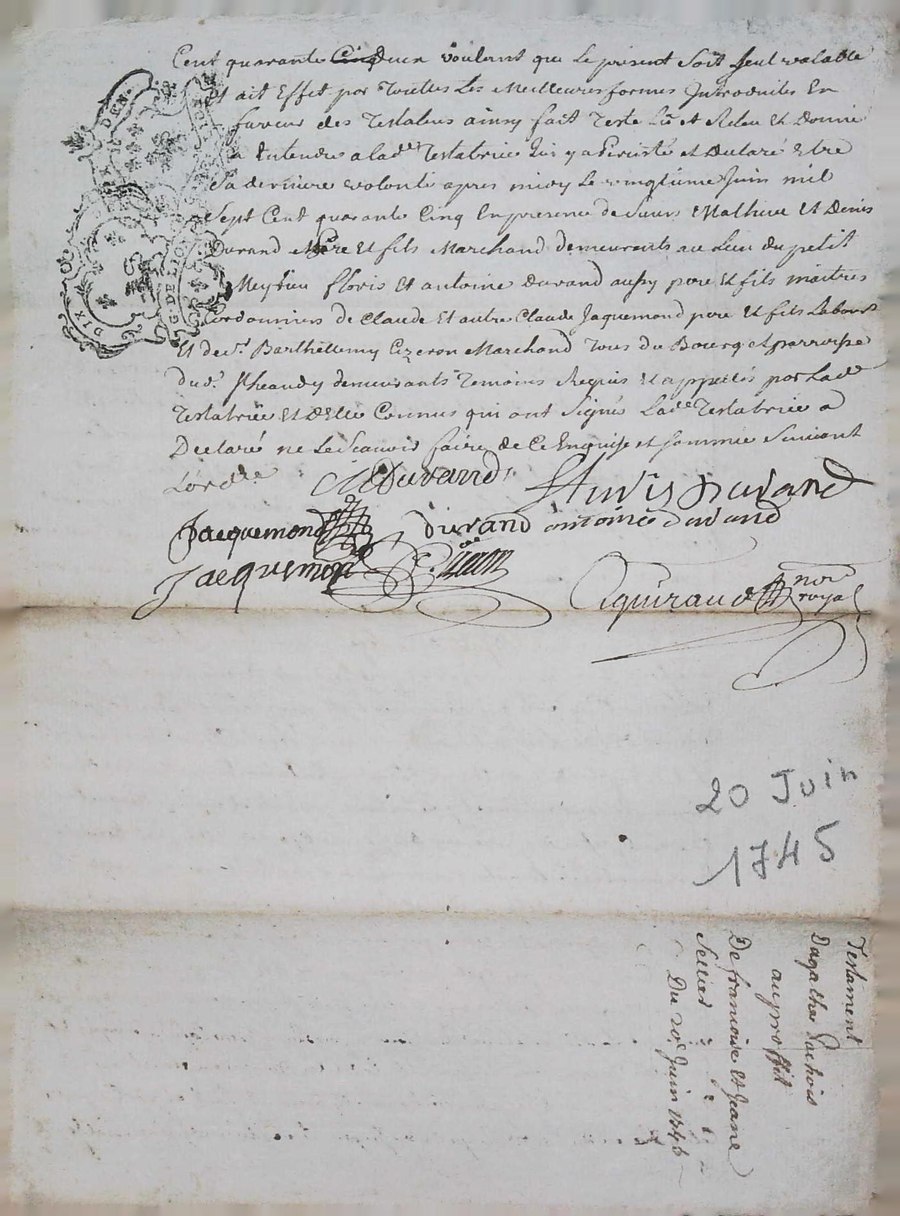 Cent quarante Cinq deux voulant que Le present Soit Seul valable
et ait Effet par Touttes Les Meilleures formes Introduites En
faveur des Testateurs ainsy fait Teste Lu et Releu Et Donné
a Entendre a lad.e Testatrice qui y a Percisté et Declaré Etre
Sa derniere volonté apres midy Le vingtieme Juin mil
Sept Cent quarante Cinq En presence de Sieurs Mathieu Et Denis
Durand Pere Et fils Marchand demeurants au lieu du petit
floris Et antoine durand aussy pere Et fils maitres
Cordonniers de Claude Et autre Claude Jaquemond pere Et fils Labour.
Et de s.r Barthellemy Cizeron Marchand Tous du Bourg et parroisse
du s.t heandy demeurants Temoins Requis et appellés par Lad.e
Testatrice Et D'Elle Connus qui ont Signés Lad.e Testatrice a
Declaré ne Le Scavoir faire de Ce Enquise et Sommée Suivant
L'ord.ce
M Durand Flouris durand
Jacquemond durand antoine durand
Jacquemond Cizeron
not royal
DIX DEN.
G. DE LION
20 Juin
1745
Testament
Dagathe Pachois
au proffit
De francoise et Jeane
Sellier
Du 20.e Juin 1745